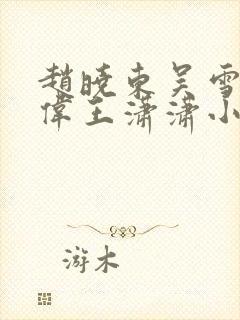 趙曉東吴雪
偉王潇潇小
游木